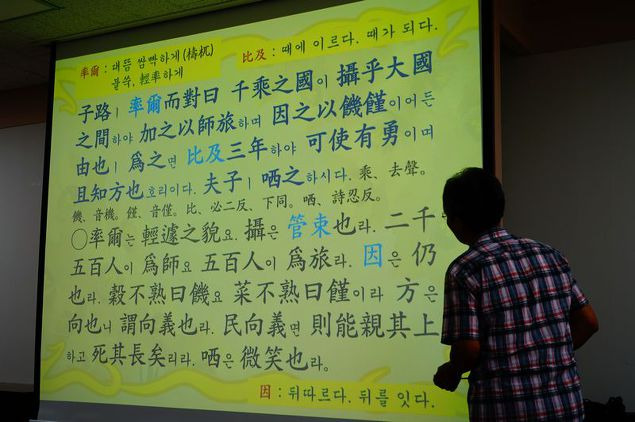 率爾 : 대뜸 쌈빡하게 (檮杌)
불쑥, 輕率하게
比及 : 때에 이르다. 때가 되다.
子路ㅣ 率爾而對曰 千乘之國이 攝乎大國
之間하야 加之以師旅하며 因之以饑饉이어든
由也ㅣ 爲之면 比及三年하야 可使有勇이며
且知方也호리이다. 夫子ㅣ 哂之하시다. 乘、去聲。
饑、音機。饉、音僅。比、必二反、下同。哂、詩忍反。
○率爾는 輕遽之貌요. 攝은 管束也라. 二千
五百人이 爲師요 五百人이 爲旅라. 因은 仍
也라. 穀不熟曰饑요 菜不熟曰饉이라 方은
向也니 謂向義也라. 民向義면 則能親其上
하고 死其長矣리라. 哂은 微笑也라.
因 : 뒤따르다. 뒤를 잇다.